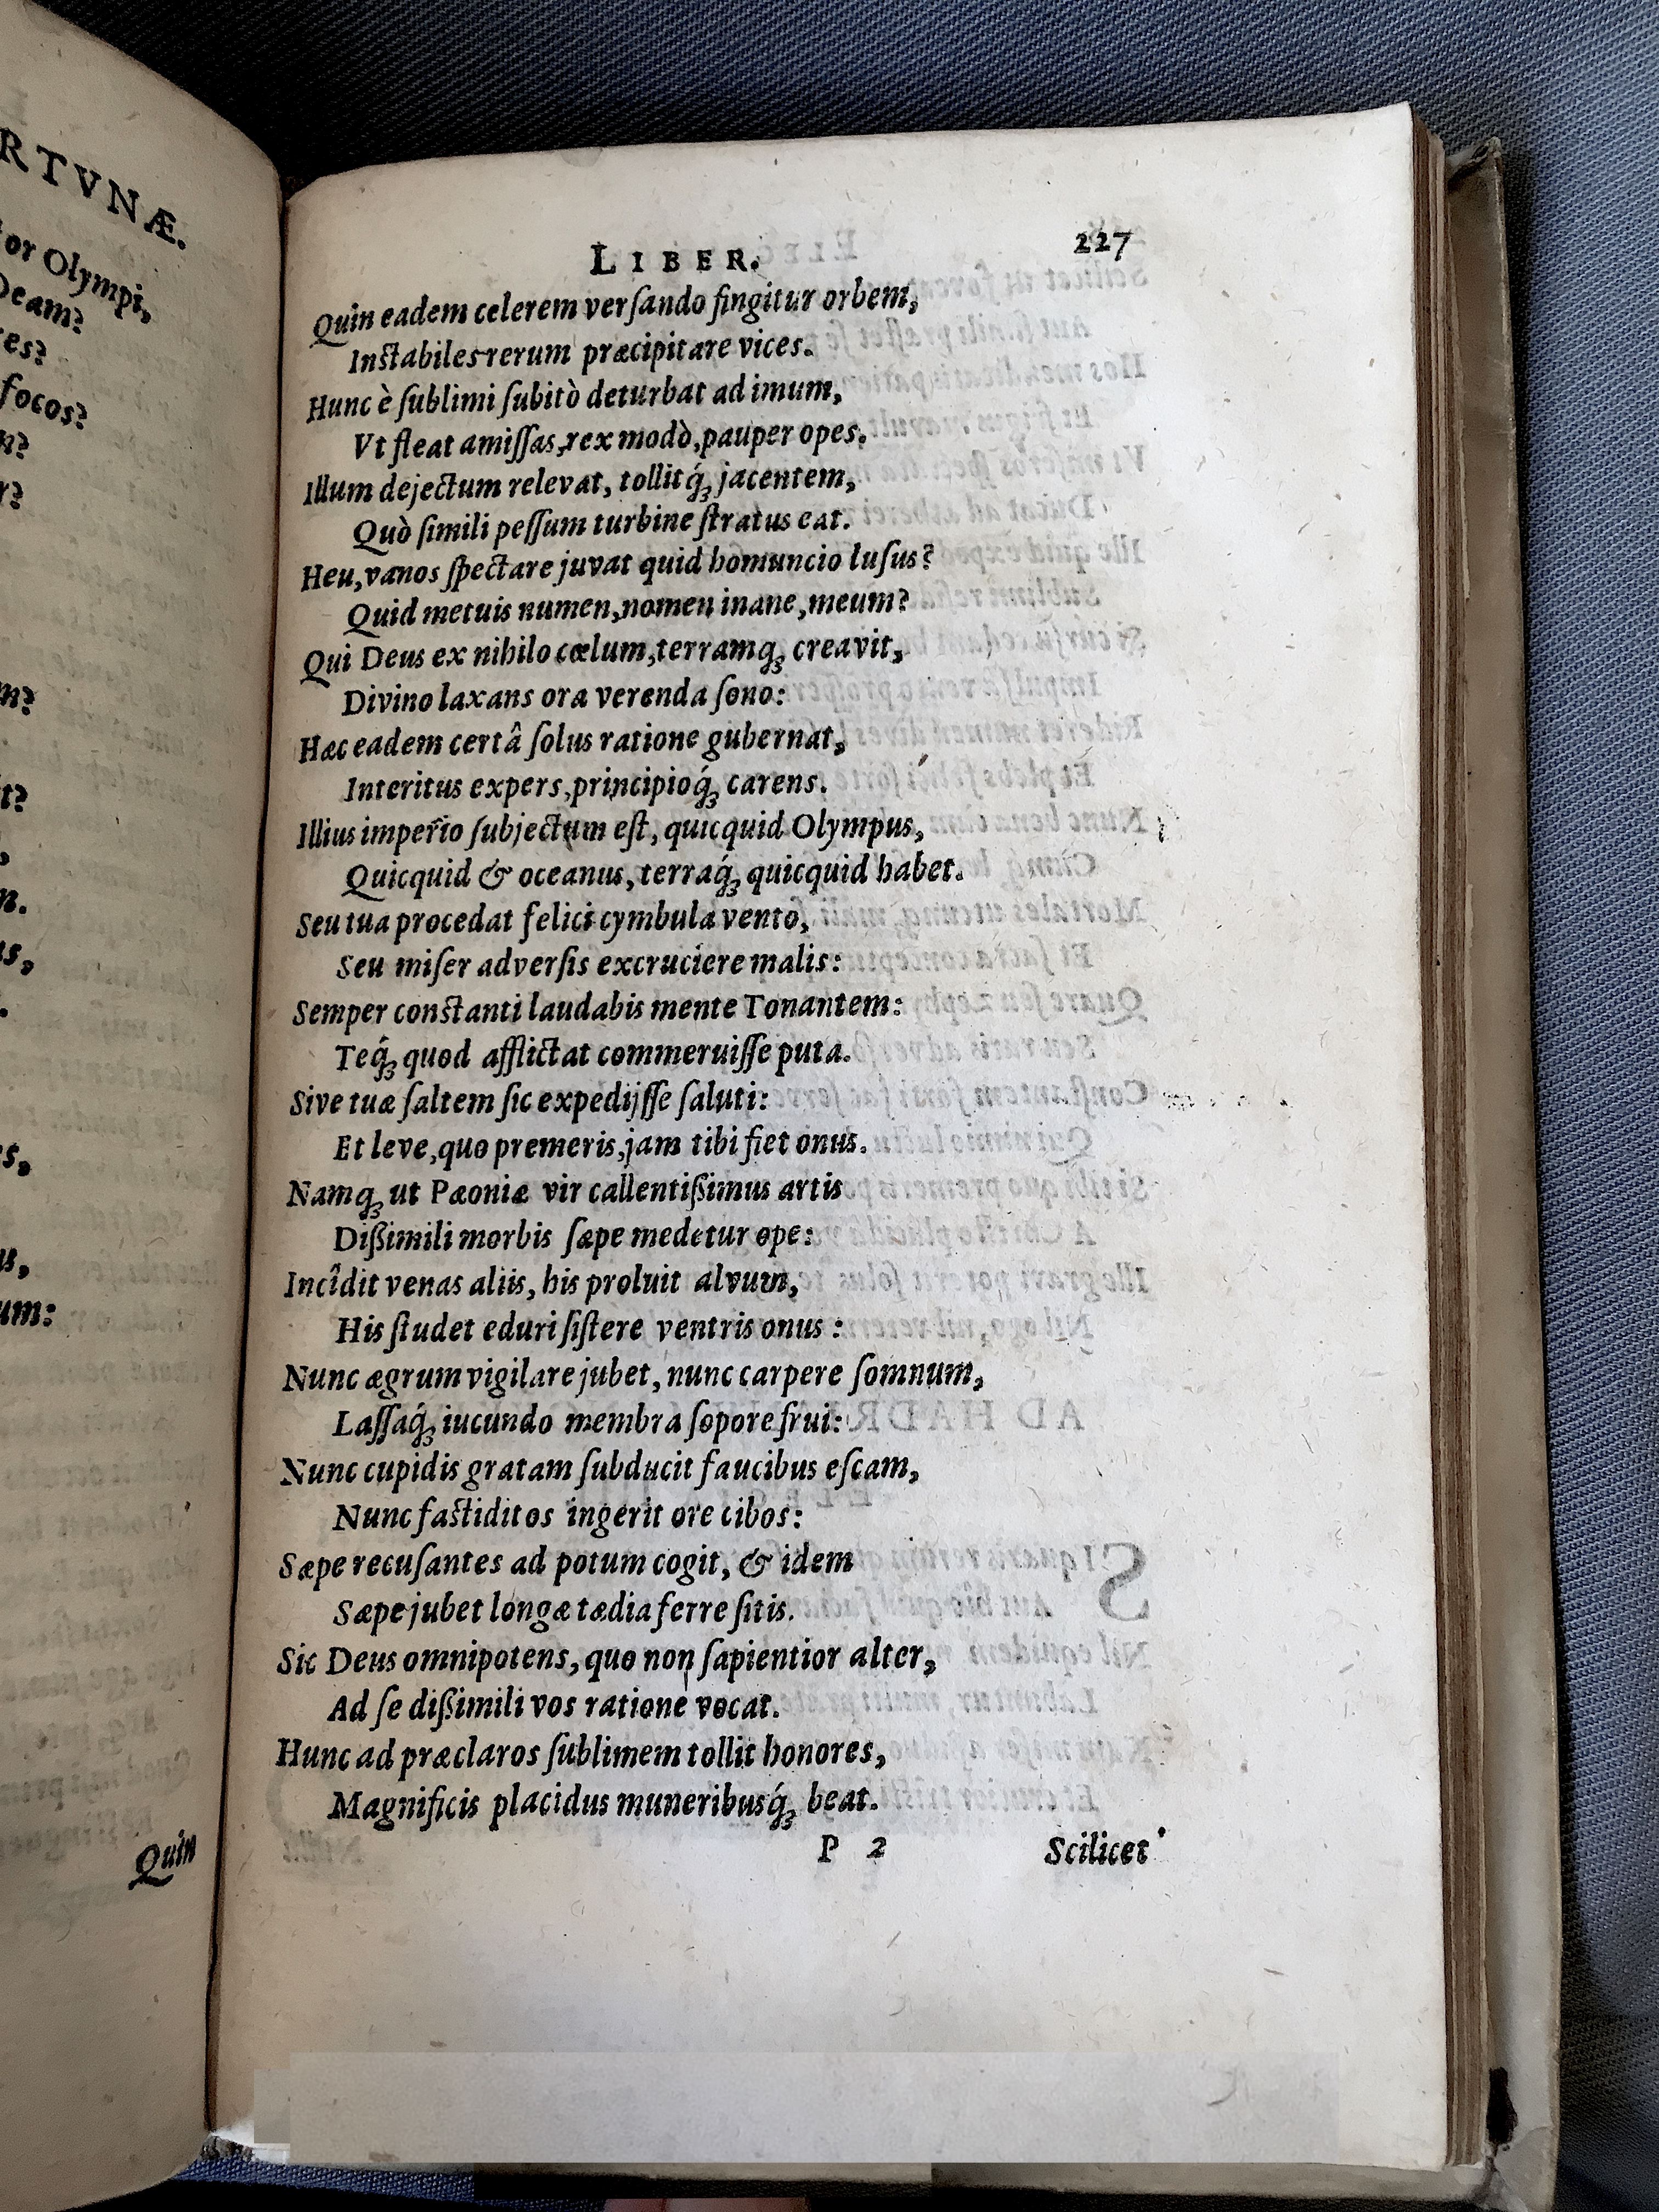 RTVNÆ.
or Olympi,
Deam?
focos?
um:
Quin
LIBER. 227
Quin eadem celerem verſando fingitur orbem,
Inſtabiles rerum præcipitare vices.
Hunc è ſublimi ſubitò deturbat ad imum,
Vt fleat amiſſas, rex modò, pauper opes.
Illum dejectum relevat, tollitq́ꝫ jacentem,
Quò ſimili peſſum turbine ſtratus eat.
Heu, vanos ſpectare juvat quid homuncio luſus?
Quid metuis numen, nomen inane, meum?
Qui Deus ex nihilo cœlum, terramqꝫ creavit,
Divino laxans ora verenda ſono:
Hæc eadem certâ ſolus ratione gubernat,
Interitus expers, principioq́ꝫ carens.
Illius imperio ſubjectum eſt, quicquid Olympus,
Quicquid & oceanus, terraq́ꝫ quicquid habet.
Seu tua procedat felici cymbula vento,
Seu miſer adverſis excruciere malis:
Semper conſtanti laudabis mente Tonantem:
Teq́ꝫ quod afflictat commeruiſſe puta.
Sive tuæ ſaltem ſic expedijſſe ſaluti:
Et leve, quo premeris, jam tibi fiet onus.
Namqꝫ ut Pæoniæ vir callentißimus artis
Dißimili morbis ſæpe medetur ope:
Incîdit venas aliis, his proluit alvum,
His ſtudet eduri ſiſtere ventris onus:
Nunc ægrum vigilare jubet, nunc carpere ſomnum,
Laſſaq́ꝫ iucundo membra ſopore frui:
Nunc cupidis gratam ſubducit faucibus eſcam,
Nunc faſtiditos ingerit ore cibos:
Sæpe recuſantes ad potum cogit, & idem
Sæpe jubet longæ tædia ferre ſitis.
Sic Deus omnipotens, quo non ſapientior alter,
Ad ſe dißimili vos ratione vocat.
Hunc ad præclaros ſublimem tollit honores,
Magnificis placidus muneribusq́ꝫ beat.
P 2 Scilicet